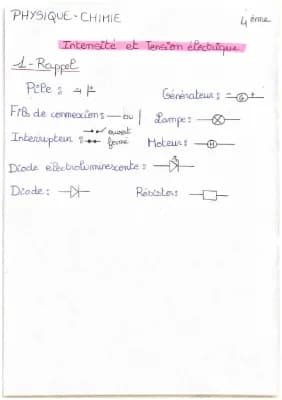 PHYSIQUE-CHIMIE
4ème
Intensité et Tension électrique
1-Rappel
Pile :
Générateur : G
Fils de connexions — ou |
Lampe :
Interrupteur : ouvert
fermé
Moteur : M
Diode électroluminescente :
Diode :
Résistor :